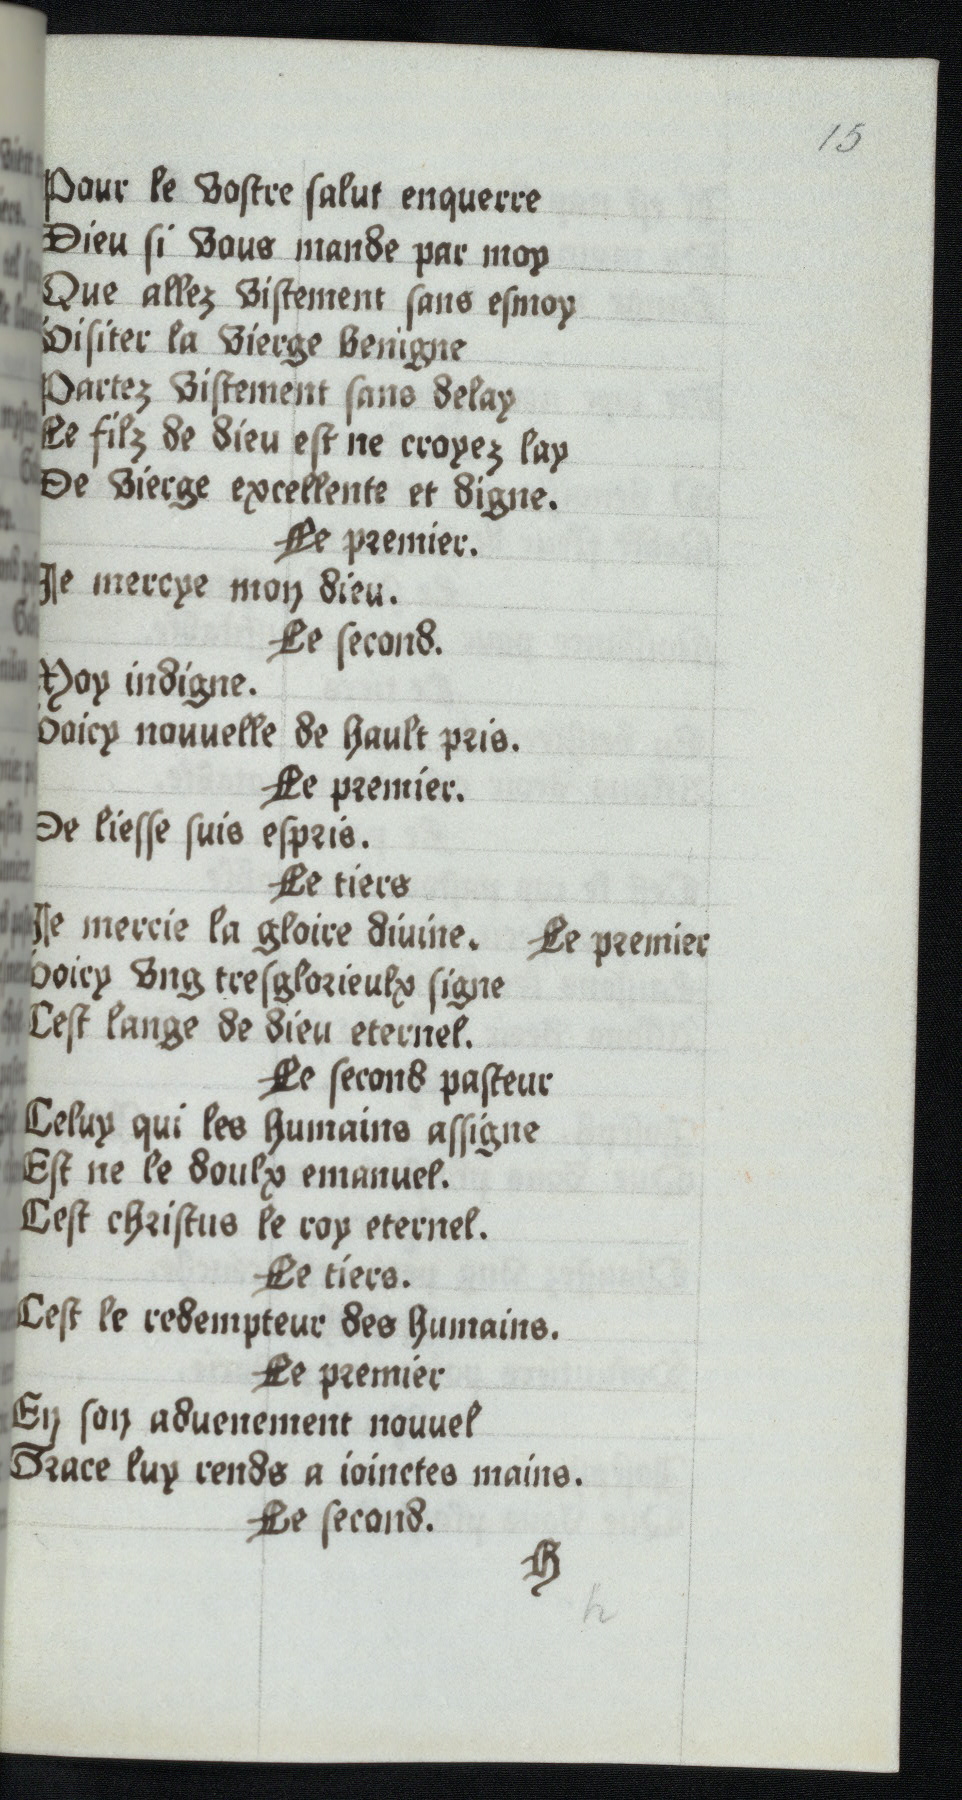 15
Pour le vostre salut enquerre
Dieu si vous mande par moy
Que allez vistement sans esmoy
Visiter la vierge benigne
Partez vistement sans delay
Le filz de dieu est ne croyez lay
De vierge excellente et digne.
Le premier.
Je mercye mon dieu.
Le second.
Moy indigne.
Voicy nouuelle de hault pris.
Le premier.
De liesse suis espris.
Le tiers
Je mercie la gloire diuine. Le premier
Voicy vng tresglorieulx signe
Cest lange de dieu eternel.
Le second pasteur
Celuy qui les humains assigne
Est ne le doulx emanuel.
Cest christus le roy eternel.
Le tiers.
Cest le redempteur des humains.
Le premier
En son aduenement nouuel
Grace luy rends a ioinctes mains.
Le second.
h
h